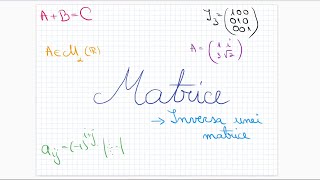 A + B = C
J₃ = (1 0 0
0 1 0
0 0 1)
A ∈ M₂(ℝ)
A = (1 i
3 √2)
Matrice
→ Inversa unei
matrice
aij = (-1)^i+j |:-·|